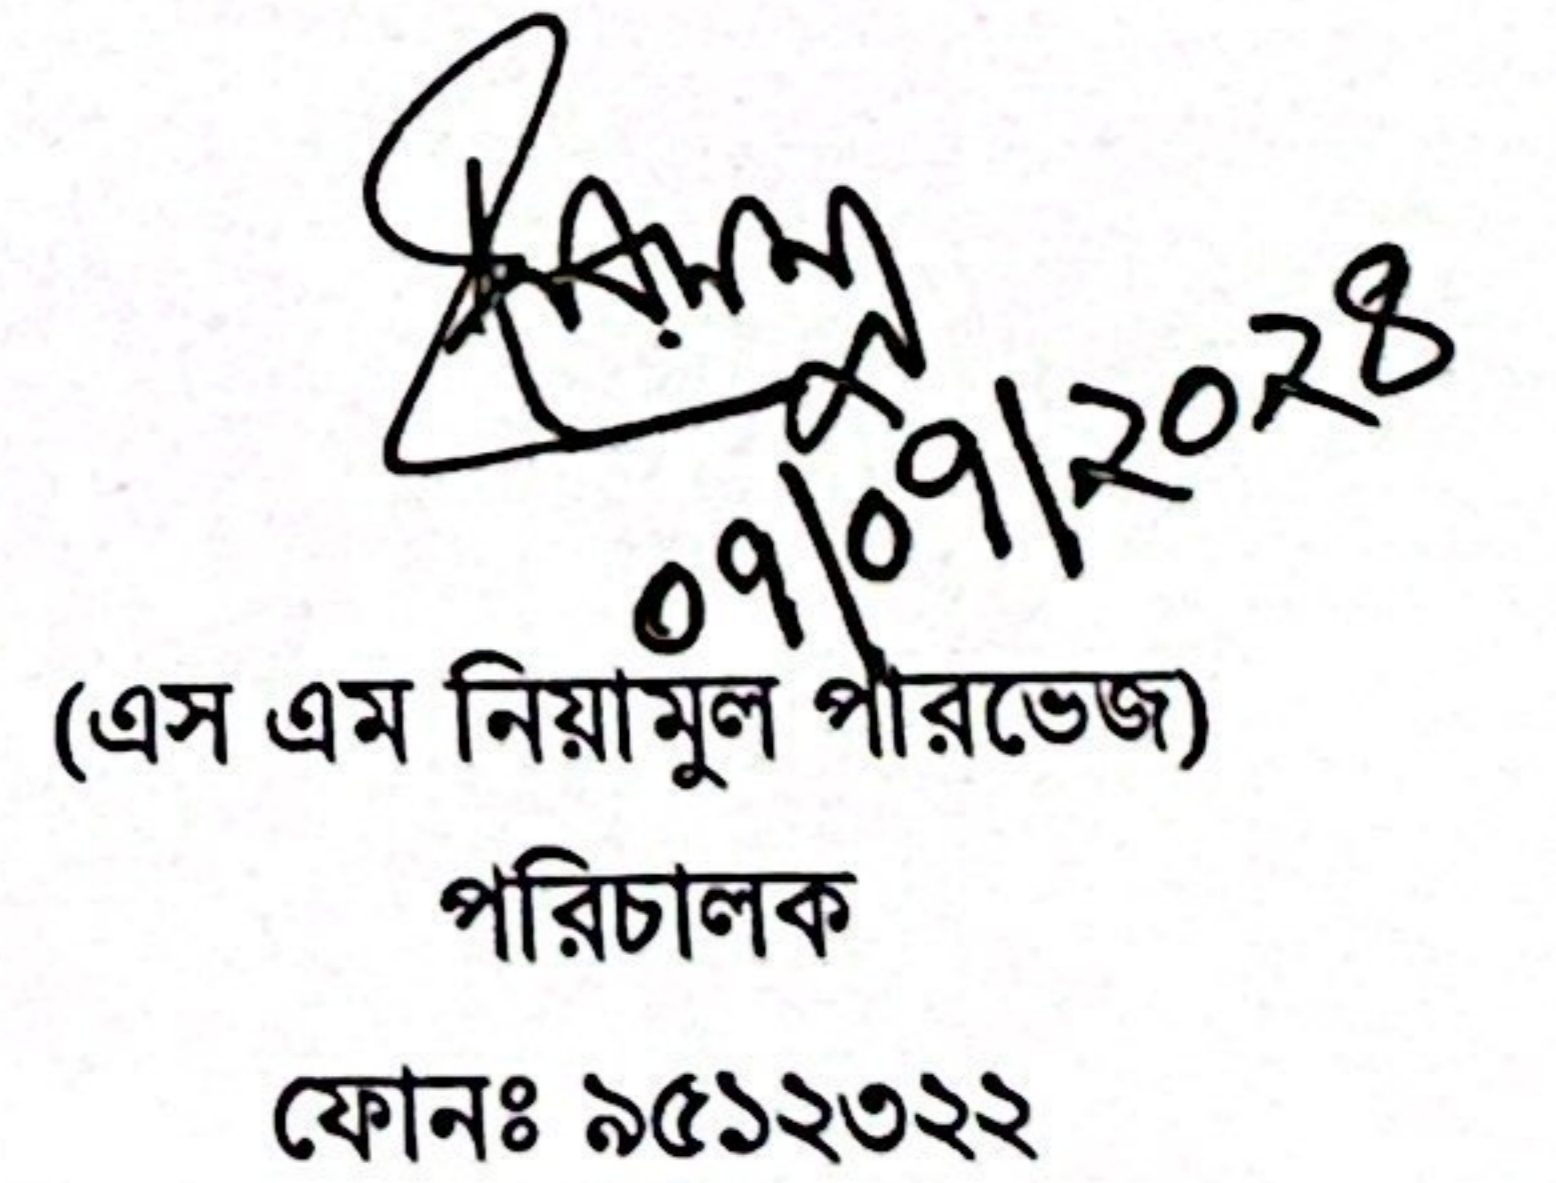 ০৭/০৭/২০২৪
(এস এম নিয়ামুল পারভেজ)
পরিচালক
ফোনঃ ৯৫১২৩২২